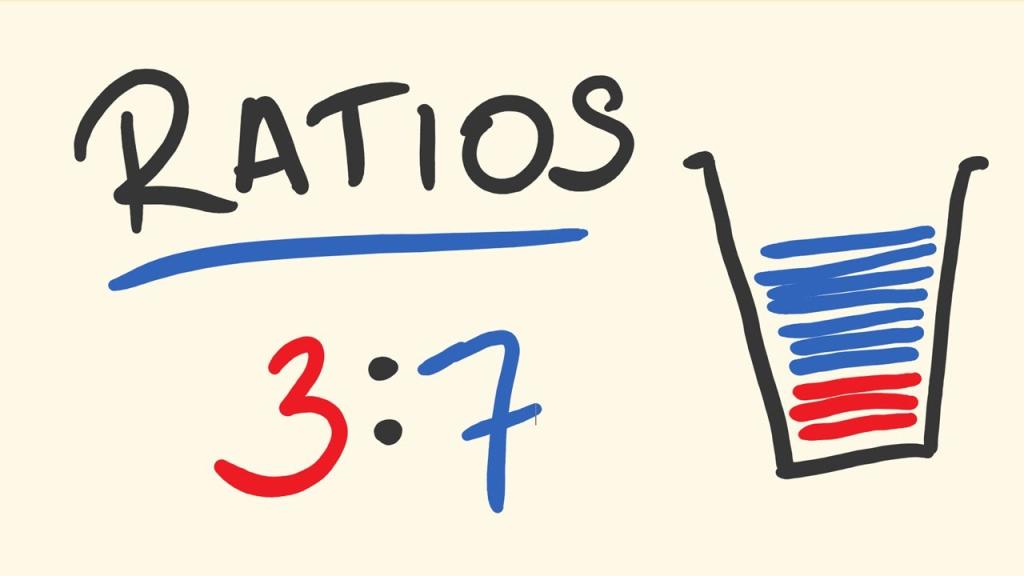 RATIOS
3:7